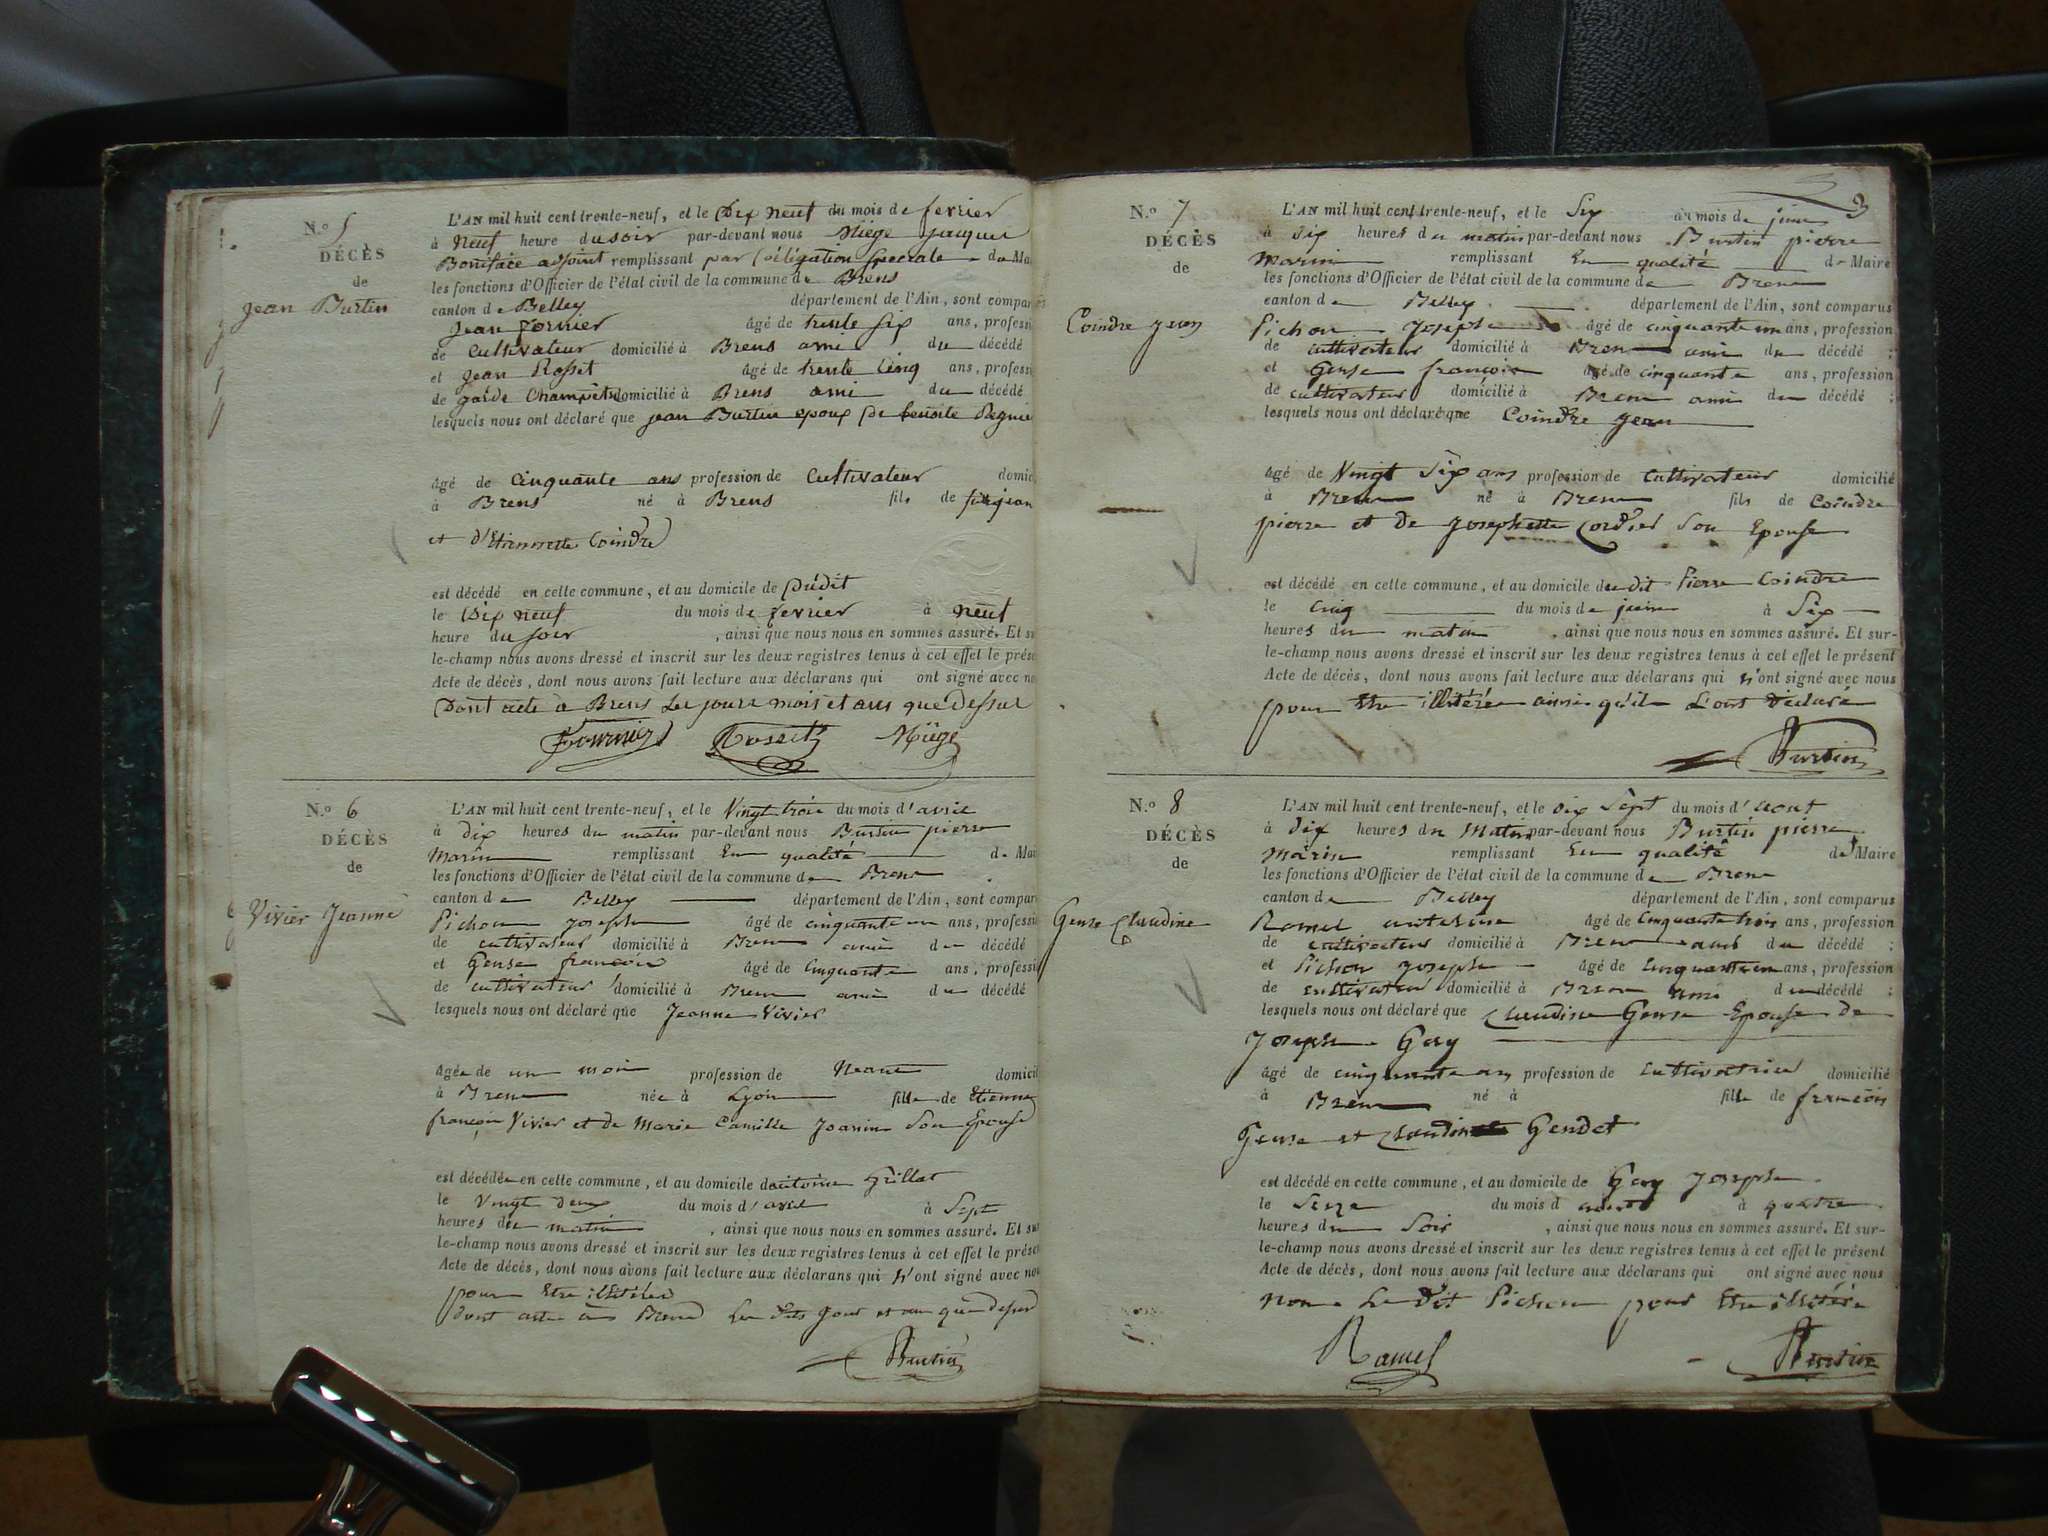 N.o 5
DÉCÈS
de
Jean Burtin
L'AN mil huit cent trente-neuf, et le Dix neuf du mois de fevrier
à neuf heure du soir par-devant nous Miege jacques
Boniface adjoint remplissant par Délégation speciale de Mai
les fonctions d'Officier de l'état civil de la commune de Brens
canton de Belley département de l'Ain, sont compar
Jean fornier âgé de trente six ans, professi
de cultivateur domicilié à Brens ami du décédé
et Jean Rosset âgé de trente cinq ans, professi
de garde Champêtre domicilié à Brens ami du décédé
lesquels nous ont déclaré que jean Burtin epoux de benoite
âgé de cinquante ans profession de cultivateur domic
à Brens né à Brens fils de feu jean
et d'Etiennette Coindre
est décédé en cette commune, et au domicile de dudit
le Dix neuf du mois de fevrier à neuf
heure du soir , ainsi que nous nous en sommes assuré. Et su
le-champ nous avons dressé et inscrit sur les deux registres tenus à cet effet le prése
Acte de décès, dont nous avons fait lecture aux déclarans qui ont signé avec no
Dont acte à Brens les jours mois et ans que dessus
Fournier Rosset Miège
N.o 6
DÉCÈS
de
Vivier Jeanne
L'AN mil huit cent trente-neuf, et le Vingt trois du mois d'avril
à dix heures du matin par-devant nous Burtin pierre
Marin remplissant En qualité de Mai
les fonctions d'Officier de l'état civil de la commune de Brens
canton de Belley département de l'Ain, sont compar
Pichon Joseph âgé de cinquante un ans, professi
de cultivateur domicilié à Brens ami du décédé
et Gense françois âgé de cinquante ans, professi
de cultivateur domicilié à Brens ami du décédé
lesquels nous ont déclaré que Jeanne Vivier
âgée de un mois profession de Neant domicil
à Brens née à Lyon fille de Etienne
françois Vivier et de Marie Camille Joanin Son Epouse
est décédée en cette commune, et au domicile d'antoine Grillat
le vingt deux du mois d'avril à Sept
heures du matin , ainsi que nous nous en sommes assuré. Et sur
le-champ nous avons dressé et inscrit sur les deux registres tenus à cet effet le prése
Acte de décès, dont nous avons fait lecture aux déclarans qui n'ont signé avec nou
pour Etre illitérés
dont acte à Brens Les dits jour et an que dessus
Burtin
3
N.o 7
DÉCÈS
de
Coindre jean
L'AN mil huit cent trente-neuf, et le Six du mois de juin
à six heures du matin par-devant nous Burtin pierre
Marin remplissant En qualité de Maire
les fonctions d'Officier de l'état civil de la commune de Brens
canton de Belley département de l'Ain, sont comparus
Pichon Joseph âgé de cinquante un ans, profession
de cultivateur domicilié à Brens ami du décédé ;
et Gense françois âgé de cinquante ans, profession
de cultivateur domicilié à Brens ami du décédé ;
lesquels nous ont déclaré que Coindre jean
âgé de Vingt Six ans profession de cultivateur domicilié
à Brens né à Brens fils de Coindre
pierre et de Josephette Cordier Son Epouse
est décédé en cette commune, et au domicile du dit Pierre Coindre
le cinq du mois de juin à Six
heures du matin , ainsi que nous nous en sommes assuré. Et sur-
le-champ nous avons dressé et inscrit sur les deux registres tenus à cet effet le présent
Acte de décès, dont nous avons fait lecture aux déclarans qui n'ont signé avec nous
pour Etre illitérés ainsi qu'ils L'ont Déclaré
Burtin
N.o 8
DÉCÈS
de
Gense Claudine
L'AN mil huit cent trente-neuf, et le dix Sept du mois d'aout
à dix heures du Matin par-devant nous Burtin pierre
Marin remplissant En qualité de Maire
les fonctions d'Officier de l'état civil de la commune de Brens
canton de Belley département de l'Ain, sont comparus
Ramel antoine âgé de Cinquante trois ans, profession
de cultivateur domicilié à Brens ami du décédé ;
et Pichon Joseph âgé de Cinquante un ans, profession
de cultivateur domicilié à Brens ami du décédé ;
lesquels nous ont déclaré que Claudine Gense Epouse de
Joseph Gay
âgé de cinquante ans profession de cultivatrice domicilié
à Brens né à fille de francois
Gense et Claudine Gendet
est décédé en cette commune, et au domicile de Gay Joseph
le Seize du mois d'aout à quatre
heures du Soir , ainsi que nous nous en sommes assuré. Et sur-
le-champ nous avons dressé et inscrit sur les deux registres tenus à cet effet le présent
Acte de décès, dont nous avons fait lecture aux déclarans qui ont signé avec nous
non Le Dit Pichon pour Etre illitéré
Ramel Burtin